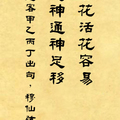 花活花容易
神通神足移
客甲乙丙丁出句，穆仙